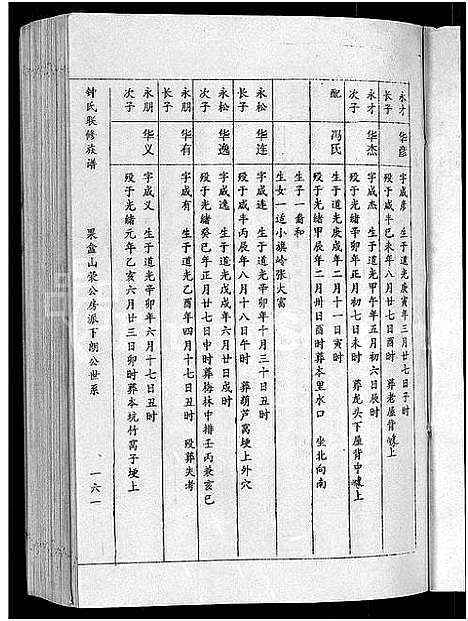 永才
长子
华彦
字咸彦 生于道光庚寅年三月廿七日子时
殁于咸丰己未年八月廿七日酉时 葬老屋背上
永才
次子
华杰
字咸杰 生于道光甲午年五月初六日辰时
殁于光绪辛卯年正月初七日未时 葬龙头下屋背中上
配
冯氏
生于道光庚戌年二月十一日寅时
殁于光绪甲辰年二月卅日酉时葬本里水口 坐北向南
生子一裔和
生女一适小旗岭张大富
永松
长子
华连
字咸连 生于道光 年十月三十日丑时
殁于咸丰丙辰年八月十八日午时 葬葫芦窝埂上外穴
永松
次子
华逸
字咸逸 生于道光戊戌年六月廿八日戌时
殁于光绪癸巳年正月廿七日申时葬梅林中排壬丙兼亥巳
永朋
长子
华有
字咸有 生于道光乙酉年四月十七日丑时 殁葬失考
永朋
次子
华义
字咸义 生于道光辛卯年六月十七日丑时
殁于光绪元年乙亥六月廿三日卯时葬本坑竹窝子埂上
钟氏联修族谱 果盒山荣公房派下朗公世系 一六一